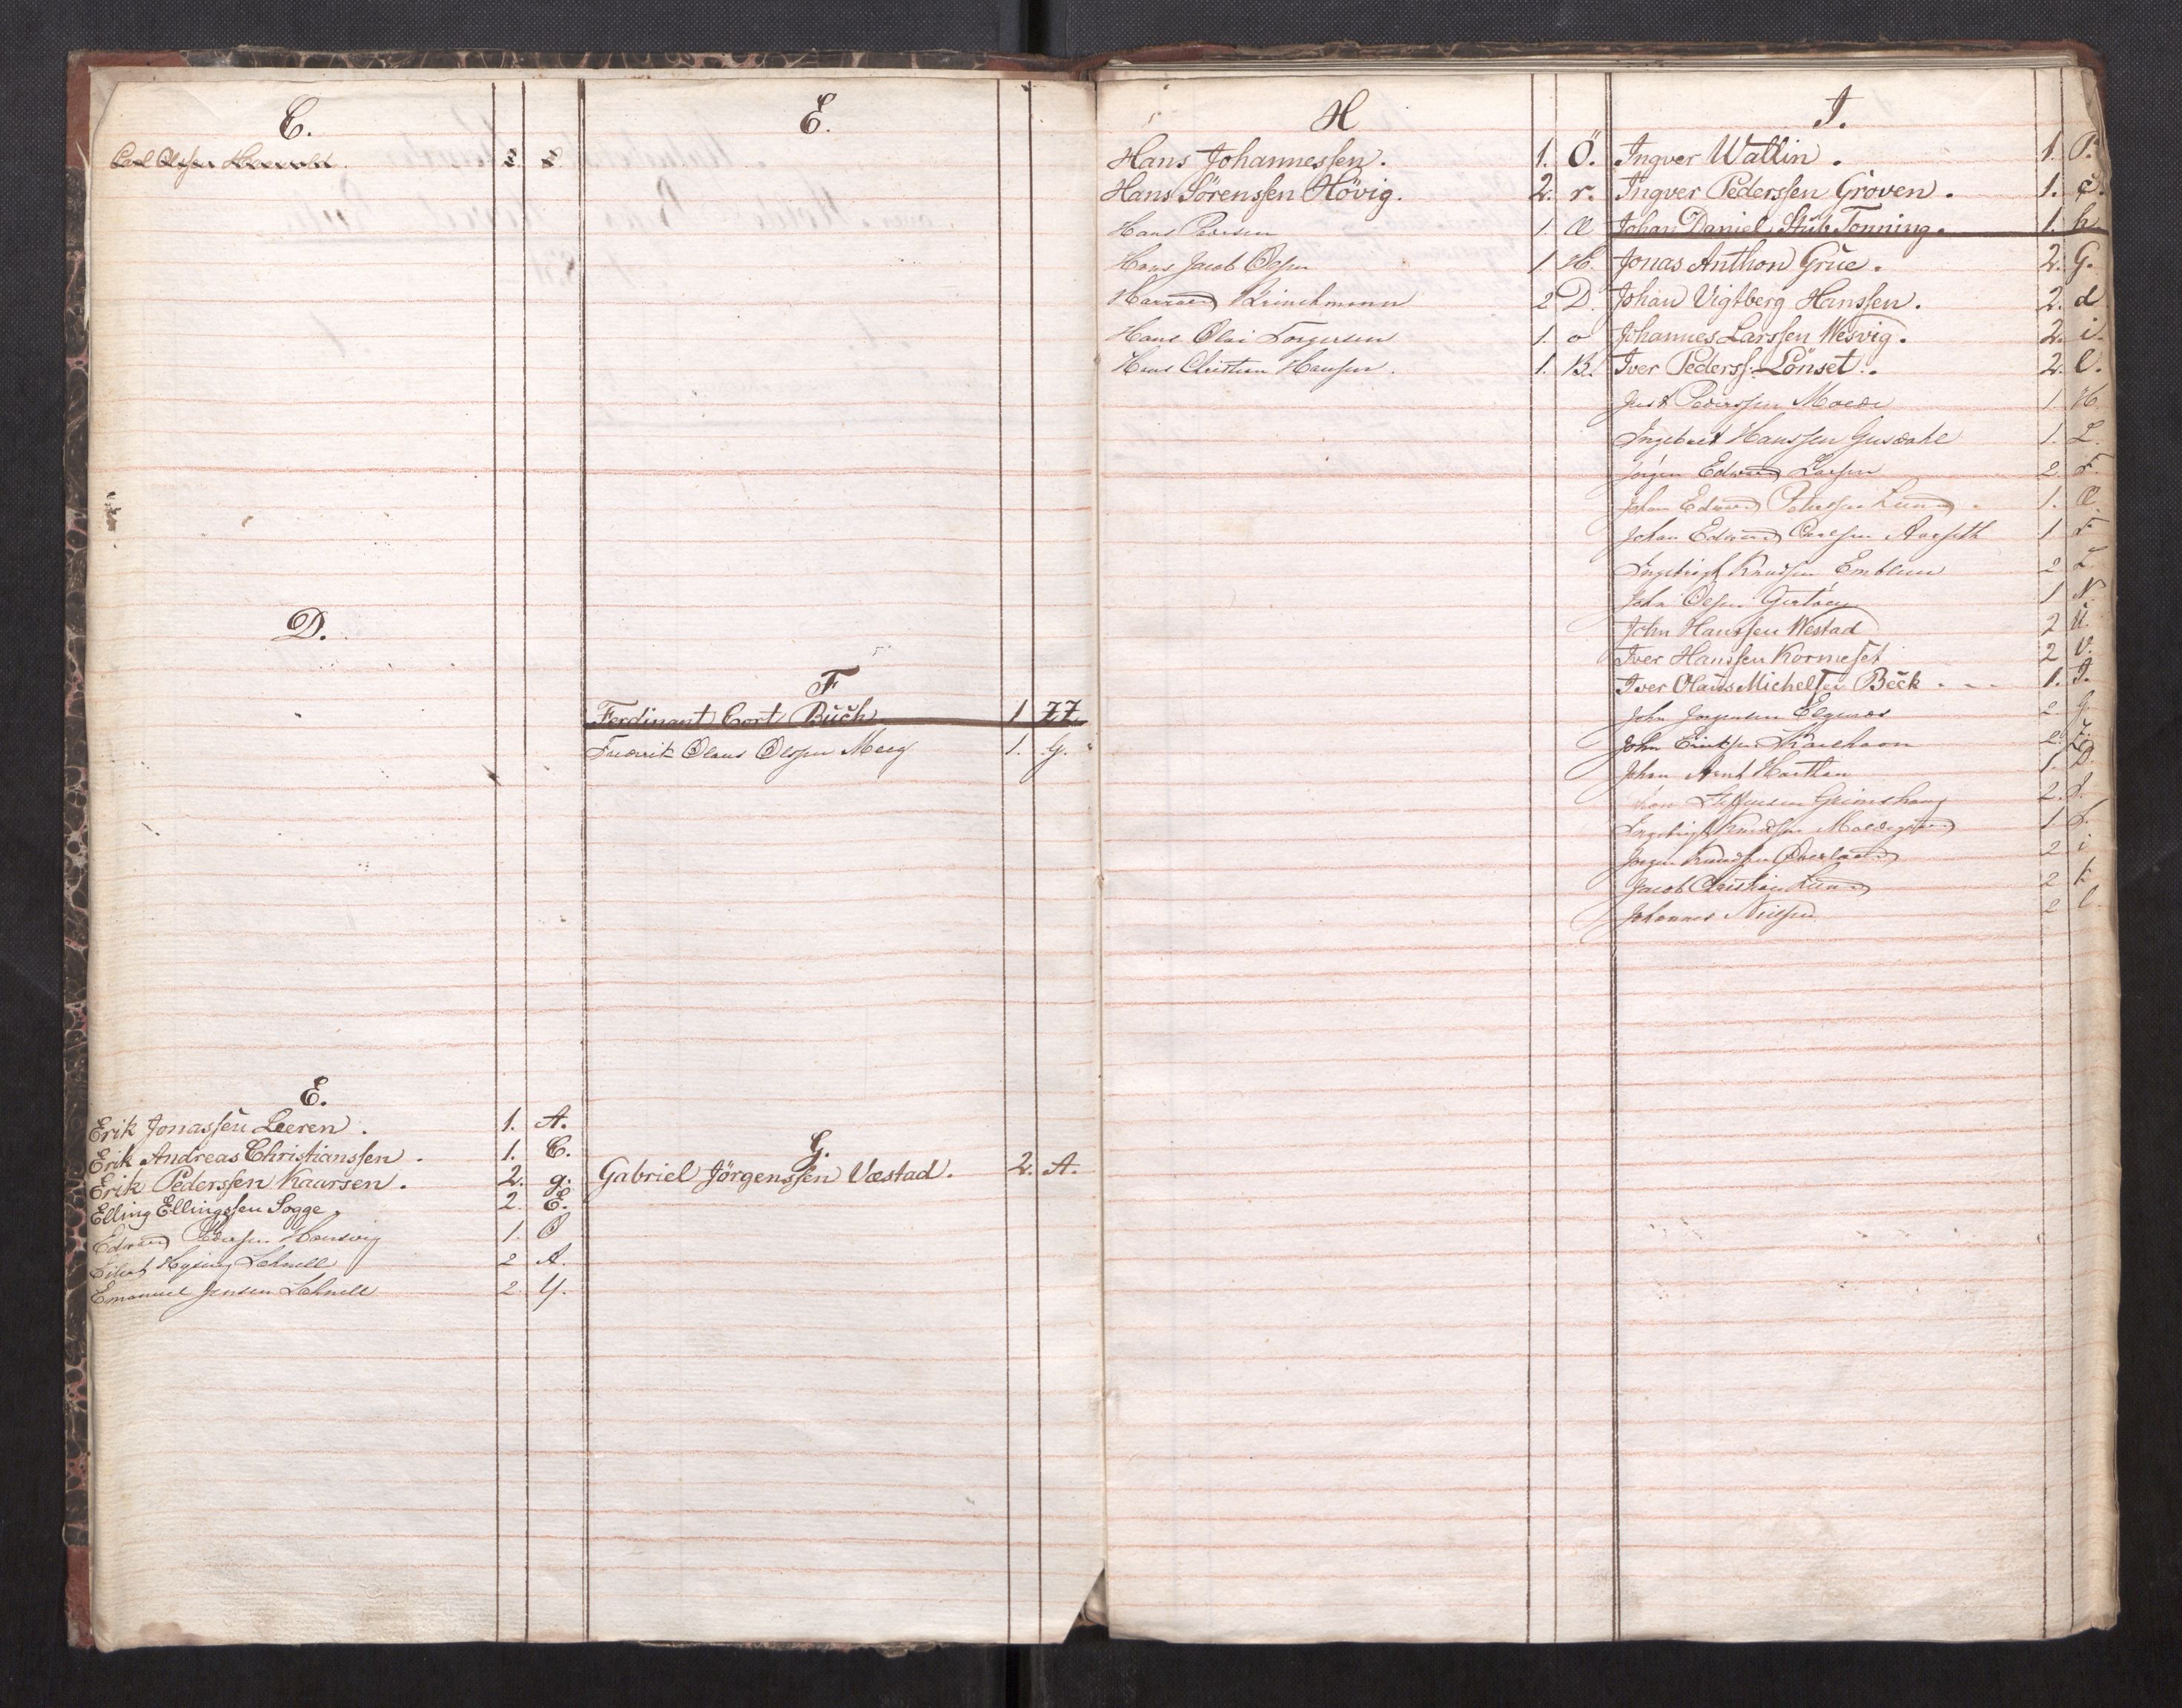 C.
Carl Olsen
D.
E.
Erik Jonassen Leeren. 1. A.
Erik Andreas Christianssen. 1. C.
Erik Pederssen Kaarsen. 2. g.
Elling Ellingssen Sogge. 2. E.
Edvard Pedersen 1. O
Schnell 2 A.
Emanuel Jensen Schnell 2. Y.
E.
F
Ferdinant Cort Buch 1 ZZ.
Fredrik Olaus Olsen Meeg 1. Y.
G.
Gabriel Jörgenssen Væstad. 2. A.
H
Hans Johannessen. 1. Ö.
Hans Sörenssen Hövig. 2. r.
Hans Pedersen 1. Æ
Hans Jacob Olsen 1 H.
Brinchmann 2 D.
Hans Olai Torgersen 1. o
Hans Christian Hansen. 1. B.
I.
Ingver Wallin. 1. P.
Ingver Pederssen Gröven. 1. c.
Johan Daniel Stub Tonning. 1. h
Jonas Anthon Grüe. 2. G.
Johan Vigtberg Hanssen. 2. d
Johannes Larssen Wesvig. 2. i.
Iver Pederss. Lönset. 2. l.
Just Pederssen Moldе 1. H
Ingebret Hanssen Gusdahl 1. L.
Jörgen Edvard Larsen 2 F.
Johan Edvard Peterssen Lund. 1. Æ.
Johan Edvard Carlsen Aarseth 1 F
Ingebrigt Knudsen Emblem 2
John Olsen 1 N
John Hanssen Westad 2 U.
Iver Hanssen Kormeset 2 V.
Iver Olaus Michelsen Beck 1. I.
John Jörgensen Elgenæs 2. G
John Eriksen 2.
Johan Arnt Harthan 1. D.
Steffensen Grimshaug 2.
Ingebrigt Knudsen Moldegaard 1
Jörgen Knudsen Överland 2 i
Jacob Christian Lund 2 k
Johannes Nilsen 2 l.